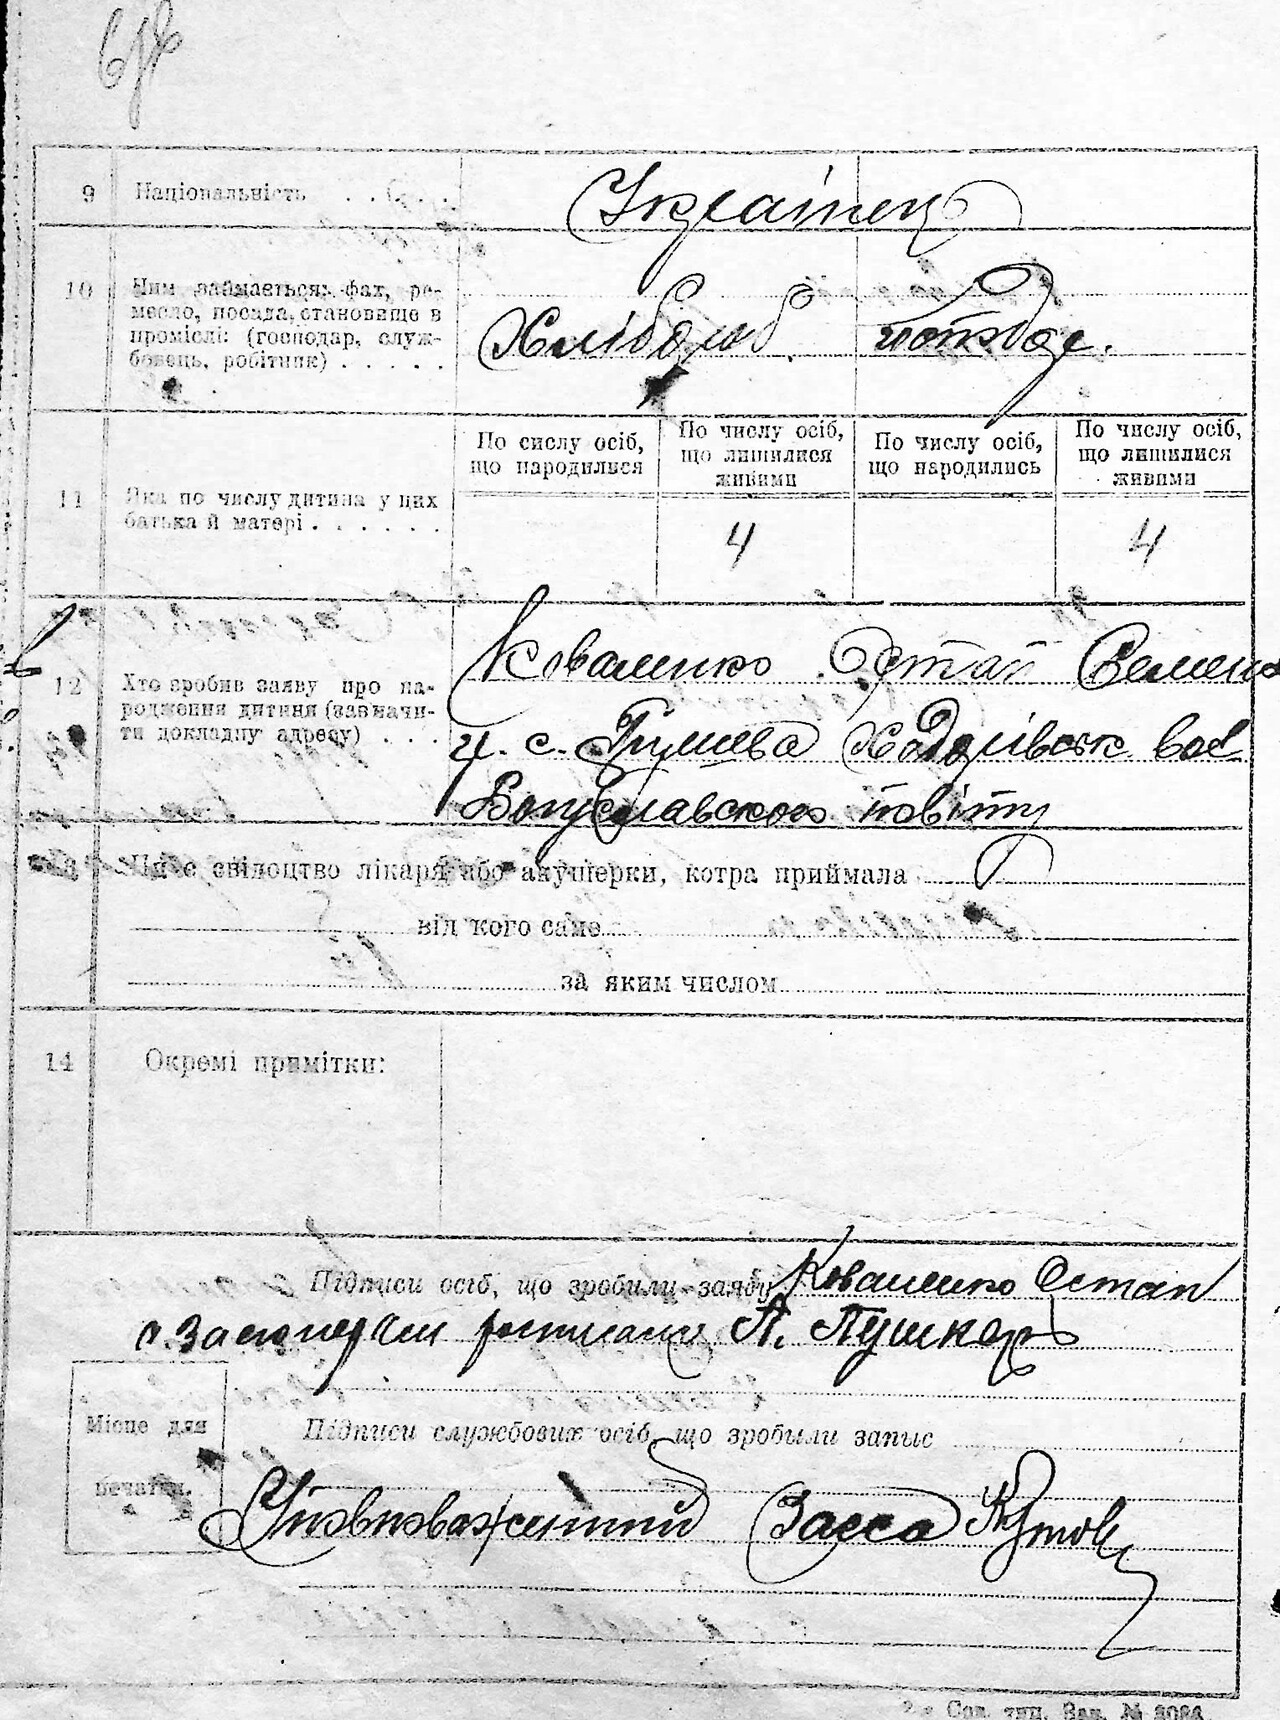 9 Національність
Українец
10 Чим займається: фах, ре-
месло, посада, становище в
промислі: (господар, служ-
бовець, робітник)
Хлібороб.
11 Яка по числу дитина у цих
батька й матері
По числу осіб, що народилися
По числу осіб, що лишилися живими
По числу осіб, що народились
По числу осіб, що лишилися живими
4 4
12 Хто зробив заяву про на-
родження дитини (зазначи-
ти докладну адресу)
Коваленко Остап Семено
ч. с. Грушева Ходорівськ вол
Богуславского повіту
Чи є свідоцтво лікаря або акушерки, котра приймала
від кого саме
за яким числом
14 Окремі примітки:
Підписи осіб, що зробили заяву Коваленко Остап
А. Пушкарь
Місце для
печатки.
Підписи службових осіб, що зробили запис
Уповноважений Загса
Сов. тип. Зак. №